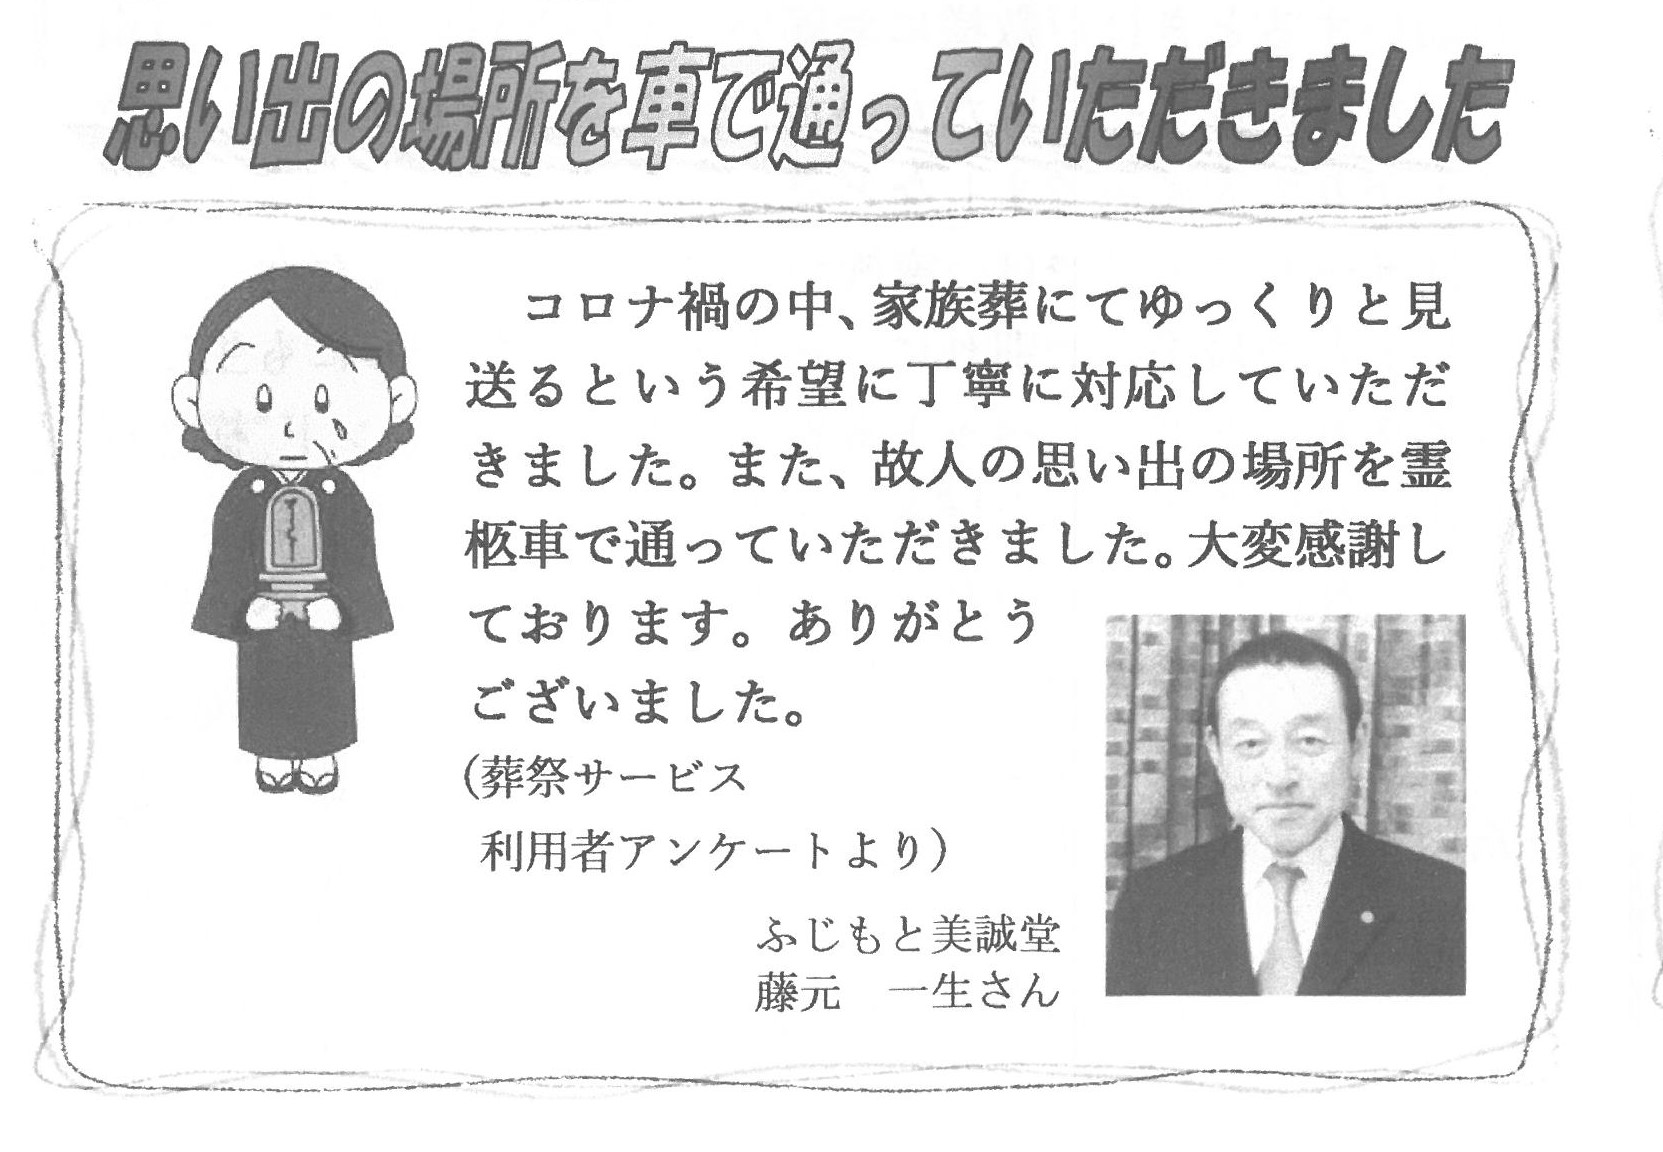 思い出の場所を車で通っていただきました
コロナ禍の中、家族葬にてゆっくりと見
送るという希望に丁寧に対応していただ
きました。また、故人の思い出の場所を霊
柩車で通っていただきました。大変感謝し
ております。ありがとう
ございました。
(葬祭サービス
利用者アンケートより)
ふじもと美誠堂
藤元　一生さん